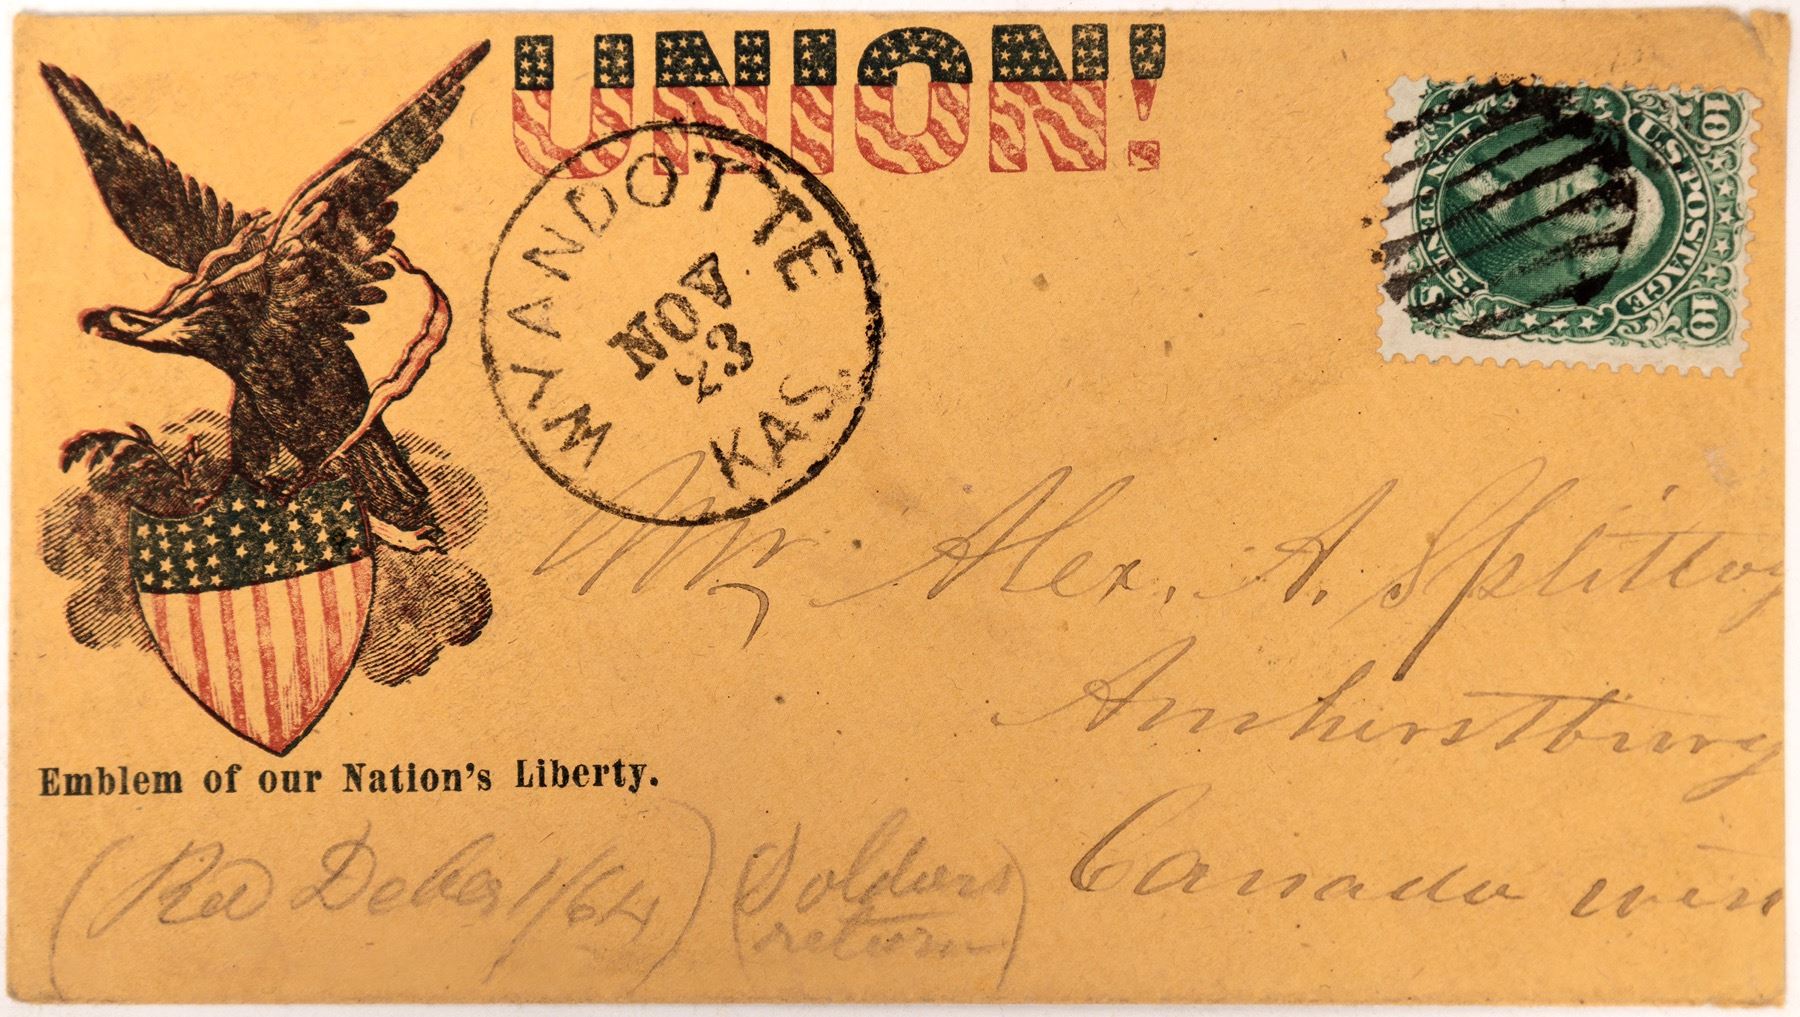 UNION!
WYANDOTTE
NOV
23
KAS
U.S. POSTAGE
10 10
TEN CENTS
Emblem of our Nation's Liberty.
Mr. Alex. A.
Amherstburg
Canada
(Rec Decber 1/64)
(Soldiers
return)